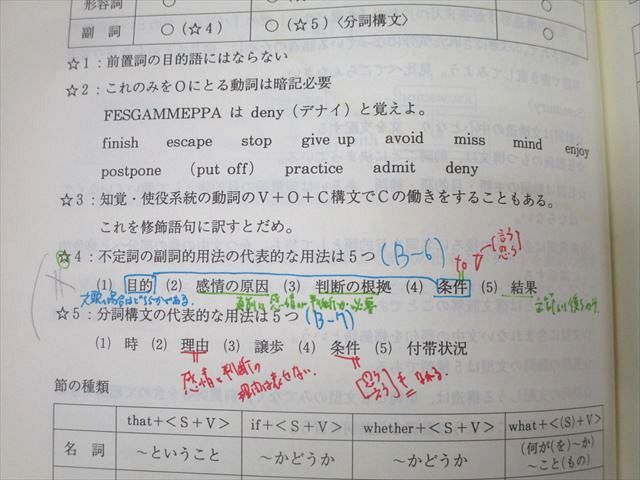 形容詞 ○(☆4) ○
副 詞 ○(☆4) ○(☆5)〈分詞構文〉 ○
☆1：前置詞の目的語にはならない
☆2：これのみをOにとる動詞は暗記必要
FESGAMMEPPA は deny（デナイ）と覚えよ。
finish escape stop give up avoid miss mind enjoy
postpone (put off) practice admit deny
☆3：知覚・使役系統の動詞のV＋O＋C構文でCの働きをすることもある。
これを修飾語句に訳すとだめ。
☆4：不定詞の副詞的用法の代表的な用法は5つ (B-6) to V [言う 思う
(1) 目的 (2) 感情の原因 (3) 判断の根拠 (4) 条件 (5) 結果
☆5：分詞構文の代表的な用法は5つ (B-7)
(1) 時 (2) 理由 (3) 譲歩 (4) 条件 (5) 付帯状況
感情と判断の
理由は表せない。
節の種類
that＋＜S＋V＞ if＋＜S＋V＞ whether＋＜S＋V＞ what＋＜(S)＋V＞
名 詞 〜ということ 〜かどうか 〜かどうか (何が(を)〜か) 〜こと(もの)